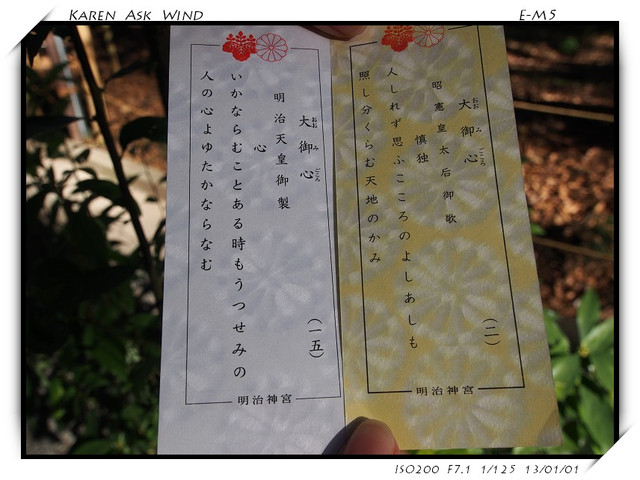 KAREN ASK WIND
E-M5
大御心
おおみごころ
昭憲皇太后御歌
慎独
人しれず思ふこころのよしあしも
照し分くらむ天地のかみ
(二)
明治神宮
大御心
おおみごころ
明治天皇御製
心
いかならむことある時もうつせみの
人の心よゆたかならなむ
(一五)
明治神宮
ISO200 F7.1 1/125 13/01/01